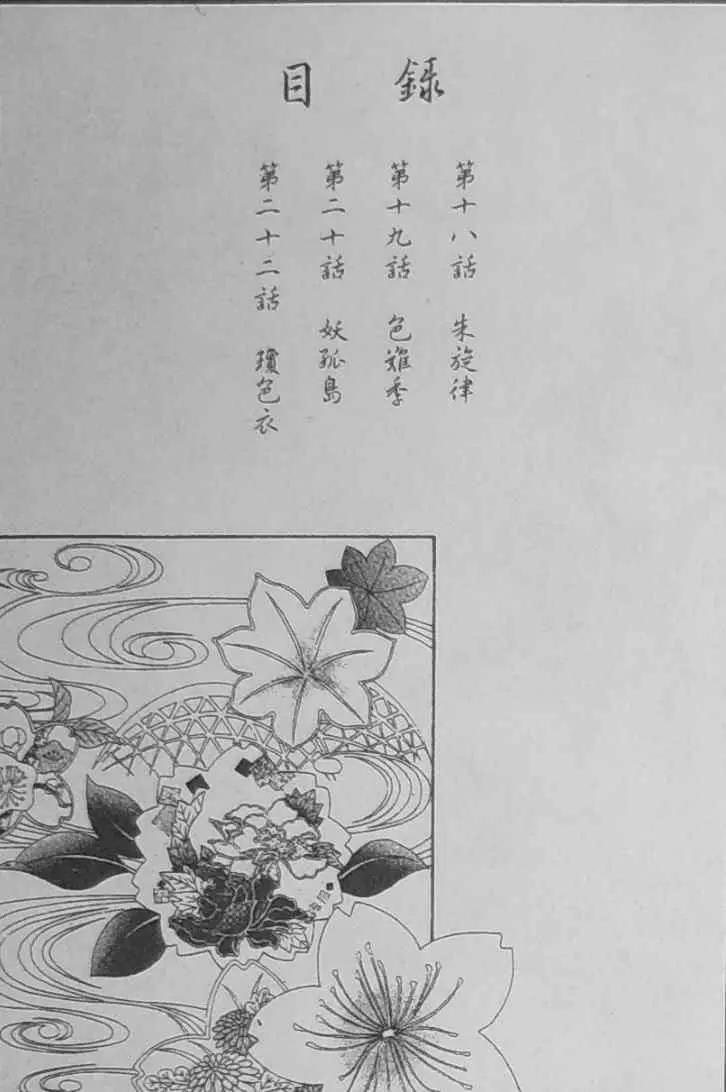 目錄
第十八話 朱旋律
第十九話 色雛季
第二十話 妖孤島
第二十二話 瓊色衣